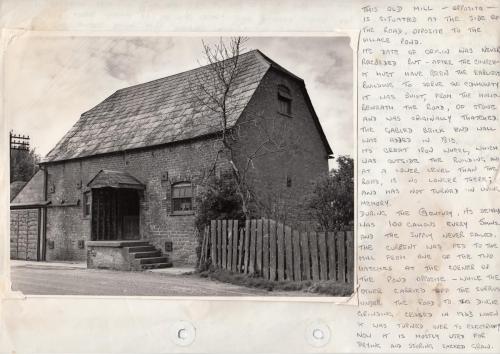 THIS OLD MILL - OPPOSITE -
IS SITUATED AT THE SIDE OF
THE ROAD, OPPOSITE TO THE
VILLAGE POND.
ITS DATE OF ORIGIN WAS NEVER
RECORDED BUT - AFTER THE CHURCH -
IT MUST HAVE BEEN THE EARLIEST
BUILDING TO SERVE THE COMMUNITY
IT WAS BUILT, FROM THE
BENEATH THE ROAD, OF STONE
AND WAS ORIGINALLY THATCHED.
THE GABLED BRICK END WALL
WAS ADDED IN 1815.
ITS GREAT IRON WHEEL, WHICH
WAS OUTSIDE THE BUILDING, AND
AT A LOWER LEVEL THAN THE
ROAD, IS NO LONGER THERE,
AND HAS NOT TURNED IN LIVING
MEMORY.
DURING THE CENTURY, ITS
WAS 100 GALLONS EVERY
AND THE SUPPLY NEVER FAILED.
THE CURRENT WAS FED TO THE
MILL FROM ONE OF THE TWO
HATCHES AT THE CORNER OF
THE POND OPPOSITE - WHILE THE
OTHER CARRIED OFF THE SURPLUS
UNDER THE ROAD TO THE
GRINDING CEASED IN WHEN
IT WAS TURNED OVER TO ELECTRICITY
NOW IT IS MOSTLY USED FOR
DRYING AND STORING SACKED GRAIN.